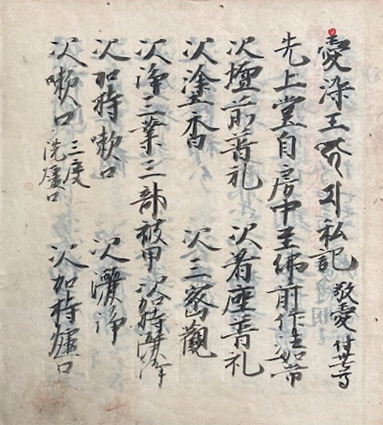 愛染王私記 敬愛
先上堂自房中至佛前作法如常
次壇前普礼 次着座普礼
次塗香 次三密觀
次淨三業三部被甲 次加持灑淨
次加持嗽口 次灑淨
次嗽口 三度 洗爐口 次加持爐口